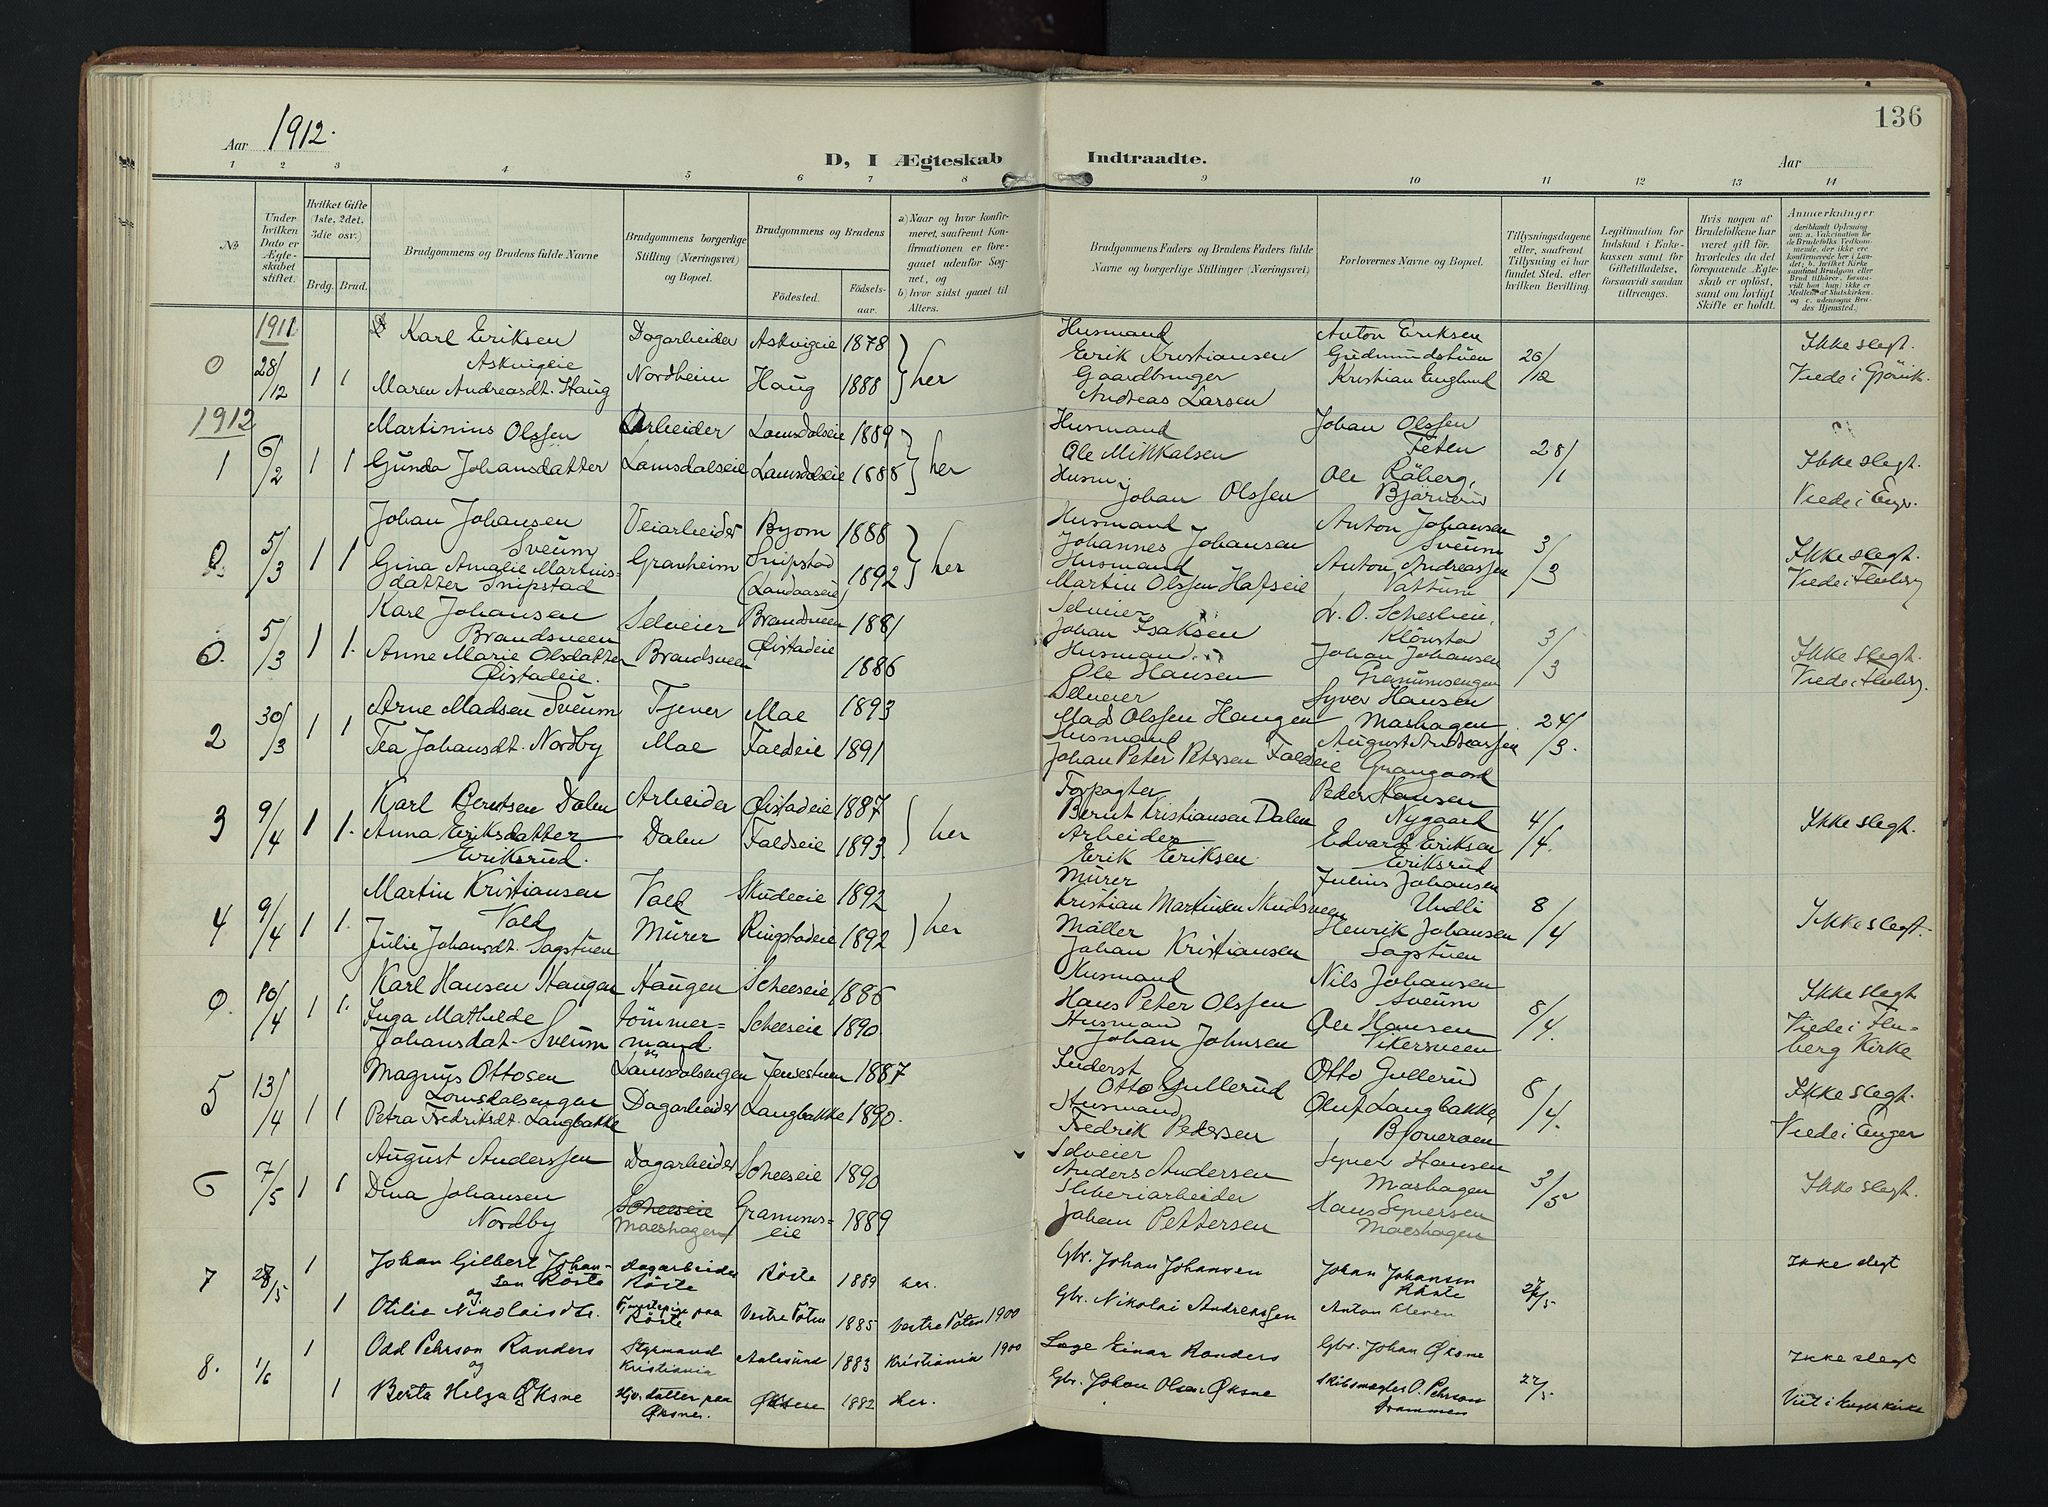 136
Aar 1912.
D, I Ægteskab Indtraadte.
Aar
1 2 3 4 5 6 7 8 9 10 11 12 13 14
No
Under hvilken Dato er Ægteskabet stiftet.
Hvilket Gifte (1ste, 2det, 3die osv.)
Brdg. Brud.
Brudgommens og Brudens fulde Navne
Brudgommens borgerlige Stilling (Næringsvei) og Bopæl.
Brudgommens og Brudens
Födested. Födselsaar.
a) Naar og hvor konfirmeret, saafremt Konfirmationen er foregaaet udenfor Sognet, og
b) hvor sidst gaaet til Alters.
Brudgommens Faders og Brudens Faders fulde Navne og borgerlige Stillinger (Næringsvei)
Forlovernes Navne og Bopæl.
Tillysningsdagene eller, saafremt Tillysning ei har fundet Sted, efter hvilken Bevilling.
Legitimation for Indskud i Enkekassen samt for Giftetilladelse, forsaavidt saadan tiltrenges.
Hvis nogen af Brudefolkene har været gift för, hvorledes da det foregaaende Ægteskab er oplöst, samt om lovligt Skifte er holdt.
Anmærkninger
1911
0 28/12 1 1 Karl Eriksen Askvigeie Dagarbeider Nordheim Askvigeie 1878 her Husmand Erik Kristiansen Anton Eriksen Gudmundstuen 26/12 Ikke slegt.
Maren Andreasdt. Haug Haug 1888 Gaardbruger Andreas Larsen Kristian Englund Viede i Gjövik.
1912
1 6/2 1 1 Martinius Olssen Arbeider Lamsdalseie 1889 her Husmand Ole Mikkalsen Johan Olssen Teten 28/1 Ikke slegt.
Gunda Johansdatter Lamsdalseie Lamsdalseie 1888 Husm. Johan Olssen Ole Råberg, Viede i Enger.
0. 5/3 1 1 Johan Johansen Sveum Veiarbeider Granheim Byom 1888 her Husmand Johannes Johansen Anton Johansen Sveum 3/3 Ikke slegt.
Gina Amalie Martinsdatter Snipstad Snipstad (Landaaseie) 1892 Husmand Martin Olssen Hafseie Anton Andreassen Vattum Viede i Fluberg
0. 5/3 1 1. Karl Johansen Brandsveen Selveier Brandsveen Brandveen 1881 Selveier Johan Isaksen 3/3 Ikke slegt.
Anne Marie Olsdatter Øistadeie. Øistadeie 1886 Husmand Ole Hansen Johan Johansen Granumsengen Viede i Fluberg.
2 30/3 1 1 Arne Madsen Sveum Tjener Mae Mae 1893 Selveier Mads Olssen Haugen Syver Hansen Mashagen 24/3.
Tea Johansdt. Nordby Faldeie 1891 Husmand Johan Peter Petersen Faldeie August Andreassen Grangaard
3 9/4 1 1. Karl Berntsen Dalen Arbeider Dalen Øistadeie 1887 her Forpagter Bernt Kristiansen Dalen Peder Hansen Nygaard 4/4. Ikke slegt.
Anna Eriksdatter Eriksrud. Faldseie 1893 Arbeider Erik Eriksen Edvard Eriksen Eriksrud
4 9/4 1 1. Martin Kristiansen Vold Vold Murer Skudeeie 1892 her Murer Kristian Martinsen Skudsveen Julius Johansen Undli 8/4 Ikke slegt.
Julie Johansdt. Sagstuen Ringstadeie 1892 Möller Johan Kristiansen Henrik Johansen Sagstuen
0. 10/4 1 1. Karl Hansen Haugen Haugen tömmermand Scheeseie 1886 Husmand Hans Peter Olssen Nils Johansen Sveum 8/4. Ikke slegt
Inga Mathilde Johansdat. Sveum Scheeseie 1890 Husmand Johan Johnsen Ole Hansen Vikersveen Viede i Fluberg Kirke
5 13/4 1 1 Magnus Ottosen Lomsdalsengen Lamsdalsengen Dagarbeider Jensestuen 1887 Inderst Otto Gullerud Otto Gullerud 8/4. Ikke slegt.
Petra Fredriksdt. Langbakke Langbakke 1890. Husmand Fredrik Pedersen Oluf Langbakke, Bjoneroen Viede i Enger
6 7/5 1 1 August Anderssen Dagarbeider Scheeseie Maeshagen Scheeseie 1890 Selveier Anders Andersen Syver Hansen Mashagen 3/5 Ikke slegt.
Dina Johansen Nordby Granumseie 1889 Sliberiarbeider Johan Pettersen Hans Syversen Maeshagen
7 28/5 1 Johan Gilbert Johansen Röste Dagarbeider Röste Röste 1889 her. Gbr. Johan Johansen Johan Johansen Röste 27/5 Ikke slegt
og
1 Otilie Nikolaisdtr. paa Röste Vestre Toten 1885 Vestre Toten 1900 Gbr. Nikolai Andreassen Anton Kleven
8. 1/6 1 Odd Pehrson Randers Styrmand Kristiania Aalesund 1883 Kristiania 1900 Læge Einar Randers Gbr. Johan Øksne 27/5 Ikke slegt
og
1 Berta Helga Øksne Gbr. datter paa Øksne. Øksne 1882 Her. Gbr. Johan Olsen Øksne Skibsmægler O. Pehrson Drammen Viet i Enger kirke